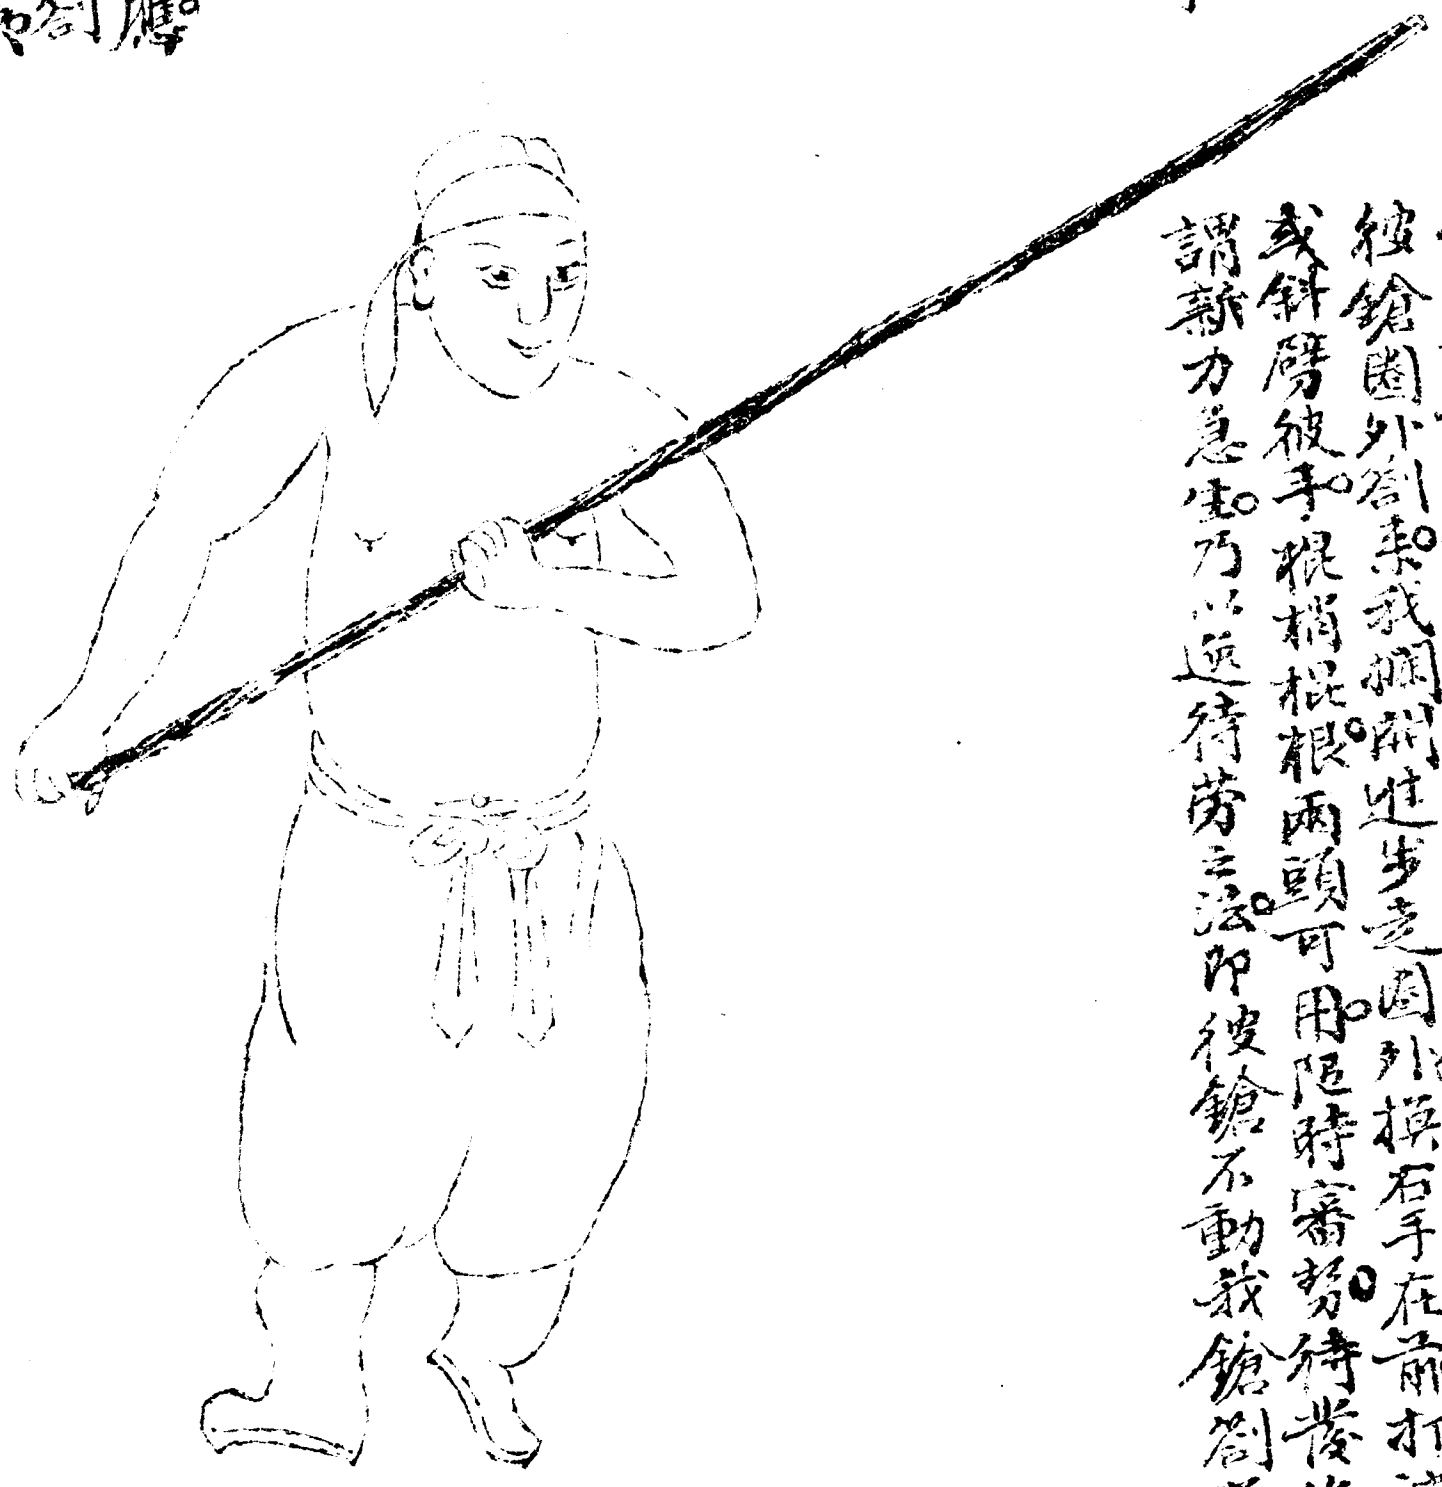 彼鎗圈外劄来我攔開進步走圈外換右手在前打
或斜劈彼手棍梢棍根兩頭可用隨時審勢待發
謂新力急生乃以逸待勞之法即彼鎗不動我鎗劄
應
劄